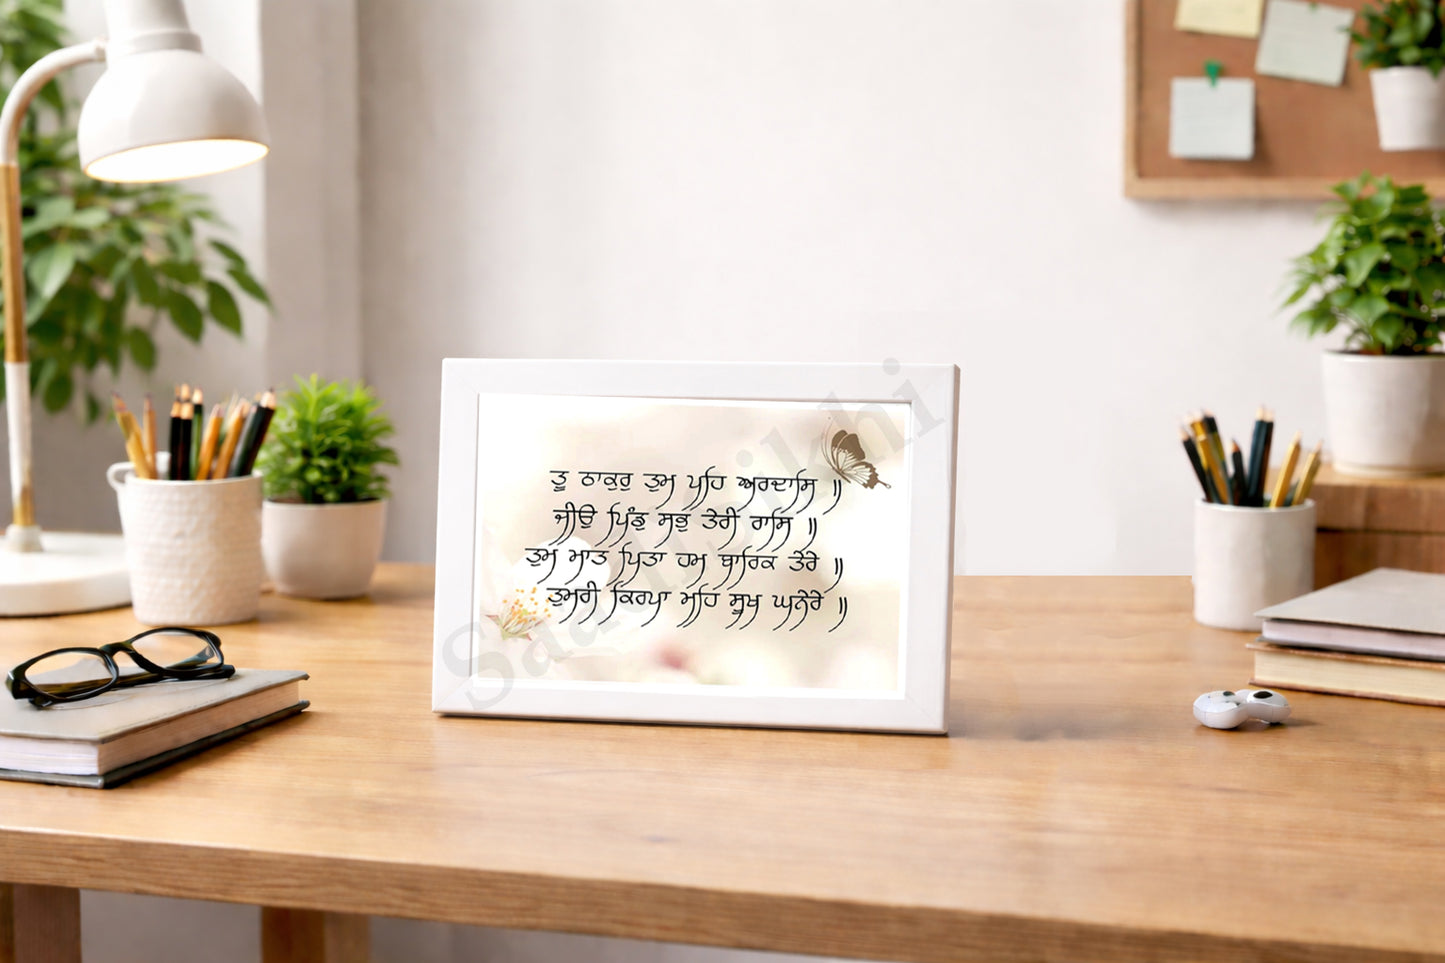 ਤੂ ਠਾਕੁਰੁ ਤੁਮ ਪਹਿ ਅਰਦਾਸਿ ॥
ਜੀਉ ਪਿੰਡੁ ਸਭੁ ਤੇਰੀ ਰਾਸਿ ॥
ਤੁਮ ਮਾਤ ਪਿਤਾ ਹਮ ਬਾਰਿਕ ਤੇਰੇ ॥
ਤੁਮਰੀ ਕਿਰਪਾ ਮਹਿ ਸੂਖ ਘਨੇਰੇ ॥